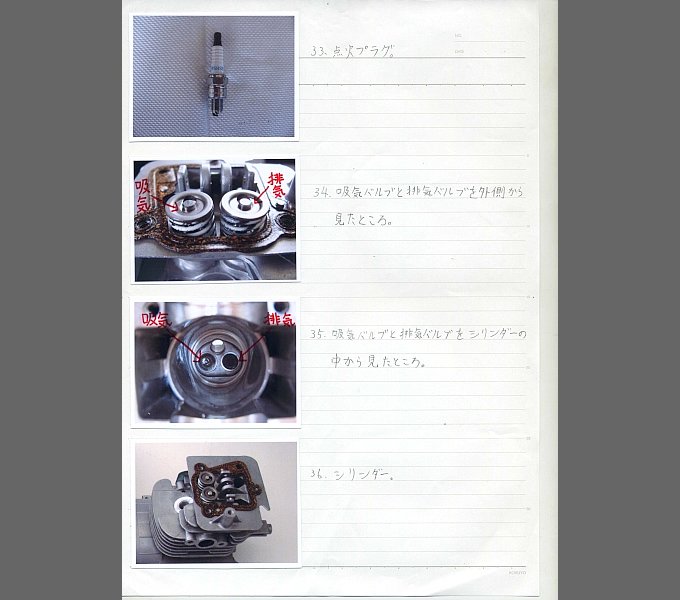 33. 点火プラグ。
吸気
排気
34. 吸気バルブと排気バルブを外側から
見たところ。
吸気
排気
35. 吸気バルブと排気バルブをシリンダーの
中から見たところ。
36. シリンダー。